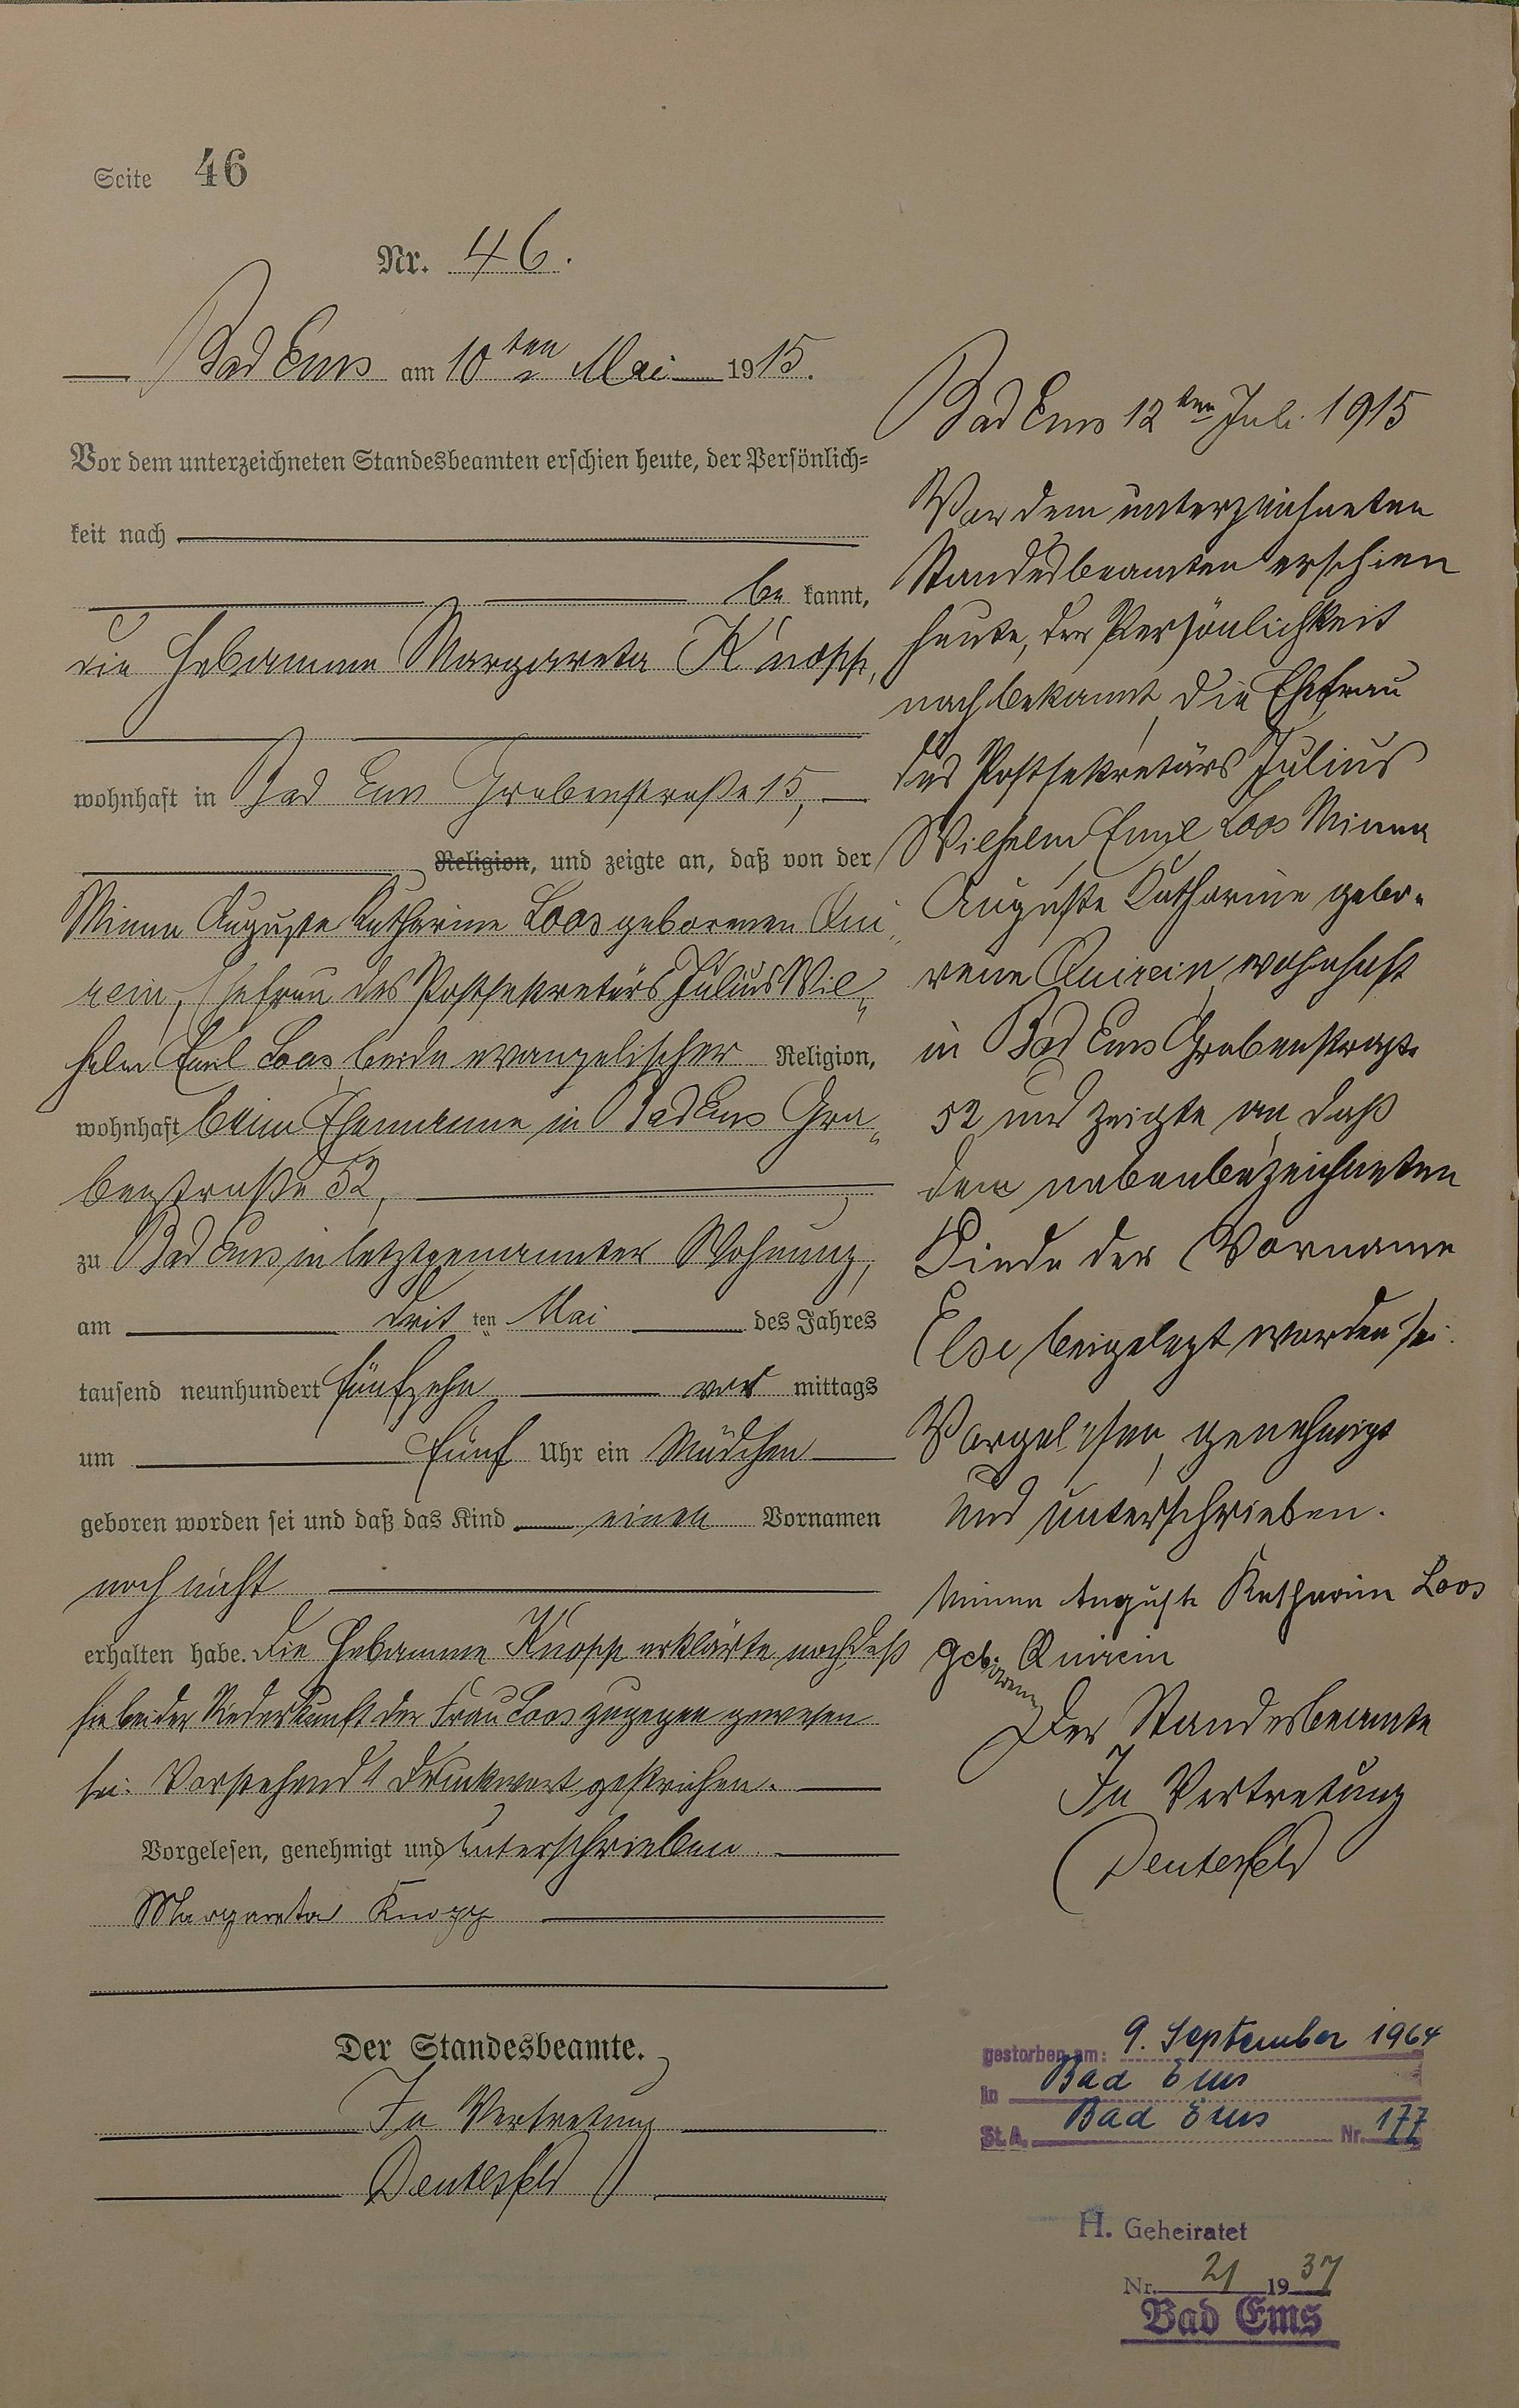 Seite 46
Nr. 46.
Bad Ems am 10ten Mai 1915.
Vor dem unterzeichneten Standesbeamten erschien heute, der Persönlich=
keit nach
be kannt,
die Hebamme Margareta Knopp,
wohnhaft in Bad Ems Grabenstraße 15,
Religion, und zeigte an, daß von der
Minna Auguste Katharine Loos geborenen Qui„
rein, Ehefrau des Postsekretärs Julius Wil„
helm Emil Loos, beide evangelischer Religion,
wohnhaft beim Ehemanne in Bad Ems Gra„
benstraße 52,
zu Bad Ems in letztgenannter Wohnung,
am drit ten Mai des Jahres
tausend neunhundert fünfzehn vor mittags
um fünf Uhr ein Mädchen
geboren worden sei und daß das Kind einen Vornamen
noch nicht
erhalten habe. Die Hebamme Knopp erklärte noch, daß
sie bei der Niederkunft der Frau Loos zugegen gewesen
sei. Vorstehend 1 Druckwort gestrichen.
Vorgelesen, genehmigt und unterschrieben
Margareta Knopp
Der Standesbeamte.
In Vertretung
Deutesfeld
Bad Ems 12ten Juli 1915
Vor dem unterzeichneten
Standesbeamten erschien
heute, der Persönlichkeit
nach bekannt, die Ehefrau
des Postsekretärs Julius
Wilhelm Emil Loos Minna
Auguste Katharine gebo„
rene Quirein, wohnhaft
in Bad Ems Grabenstraße
52 und zeigte an, daß
dem nebenbezeichneten
Kinde der Vorname
Else beigelegt worden sei.
Vorgelesen, genehmigt
und unterschrieben.
Minna Auguste Katharine Loos
geborene Quirein
Der Standesbeamte
In Vertretung
Deutesfeld
gestorben am: 9. September 1964
in Bad Ems
St. A. Bad Ems Nr. 177
H. Geheiratet
Nr. 21 1937
Bad Ems